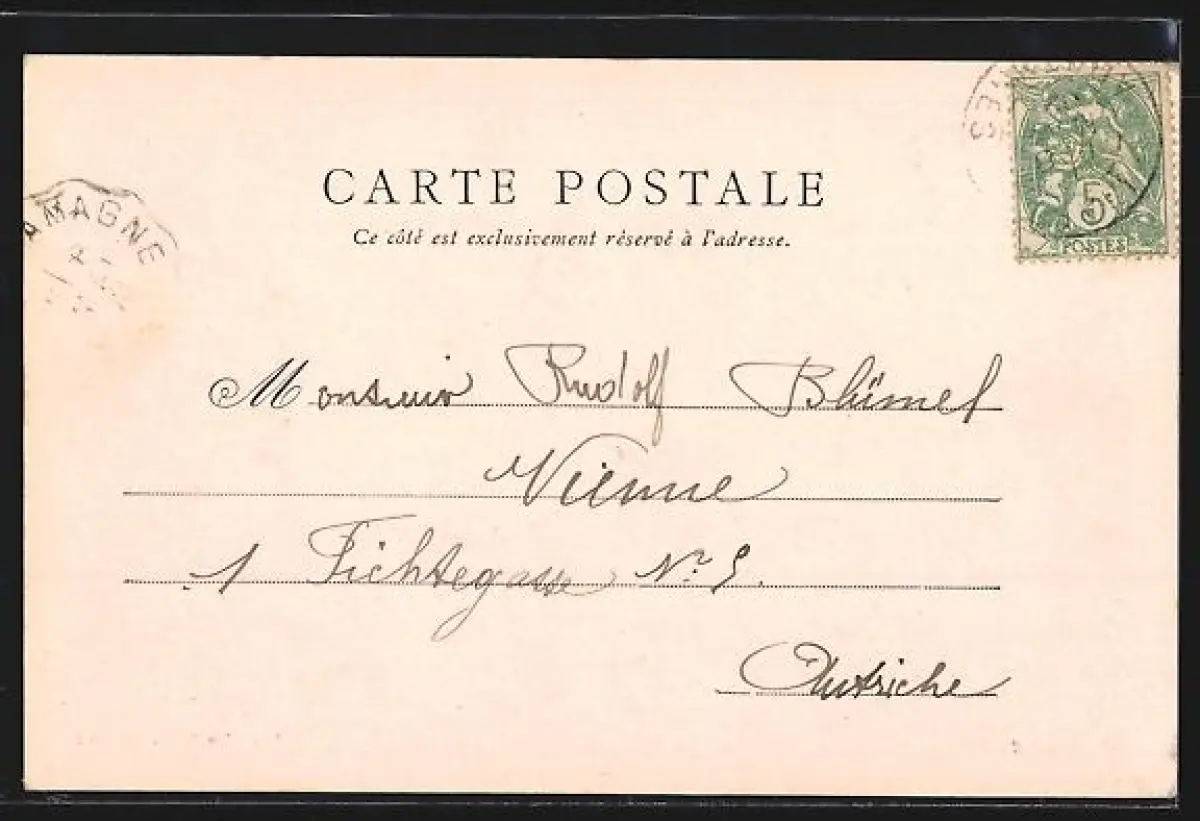 CARTE POSTALE
Ce côté est exclusivement réservé à l'adresse.
5c
POSTES
AMAGNE
Monsieur Rudolf Blümel
Vienne
1 Fichtegasse No 5.
Autriche